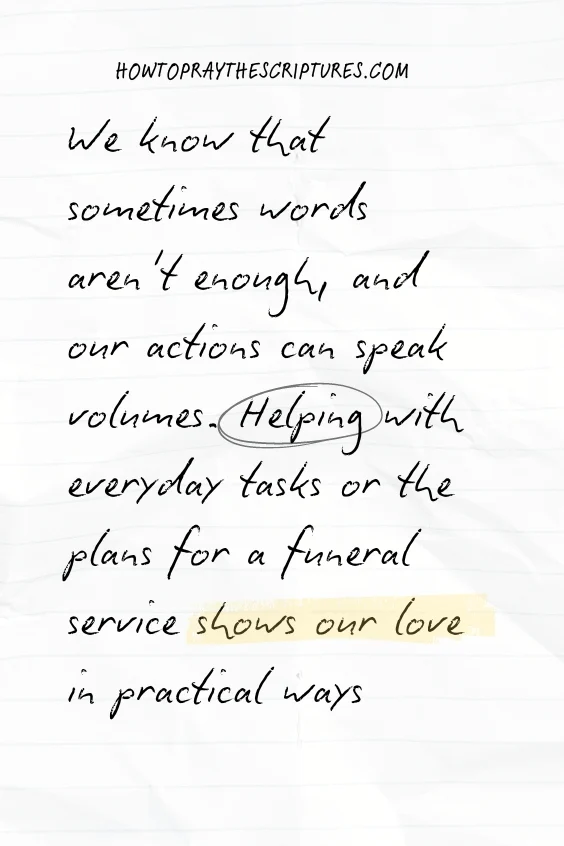 HOWTOPRAYTHESCRIPTURES.COM
We know that
sometimes words
aren't enough, and
our actions can speak
volumes. Helping with
everyday tasks or the
plans for a funeral
service shows our love
in practical ways